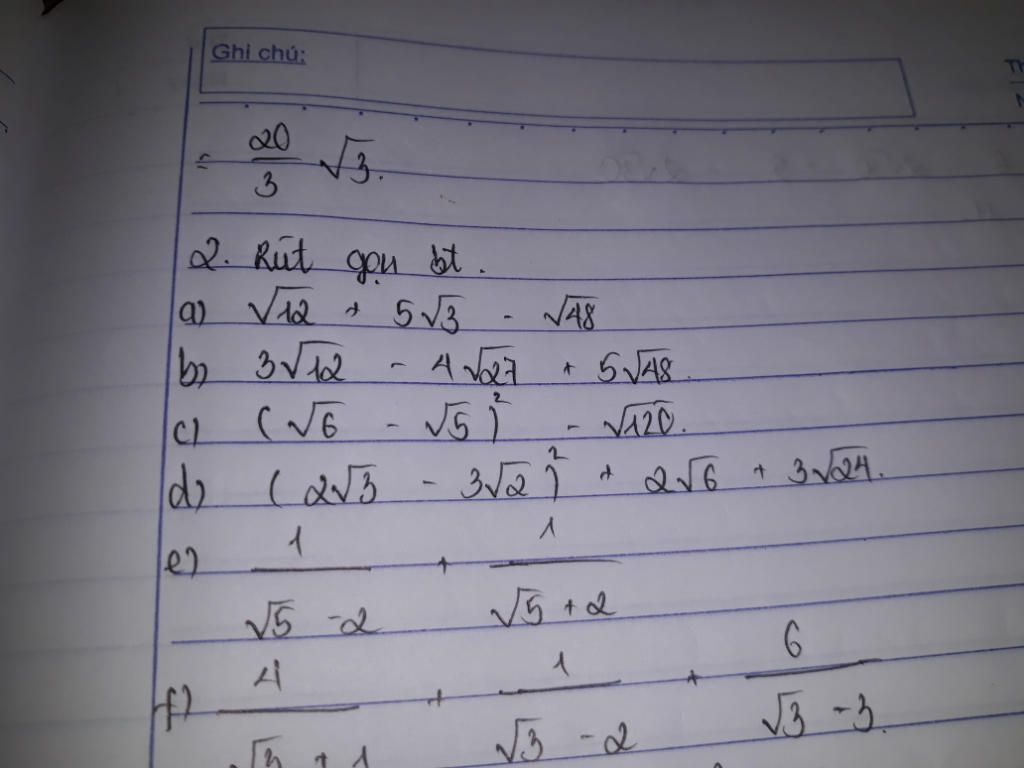 Ghi chú:
= 20/3 √3.
2. Rút gọn bt.
a) √12 + 5√3 - √48
b) 3√12 - 4√27 + 5√48.
c) (√6 - √5)² - √120.
d) (2√3 - 3√2)² + 2√6 + 3√24.
e) 1/(√5 - 2) + 1/(√5 + 2)
f) 4/(√3 + 1) + 1/(√3 - 2) + 6/(√3 - 3).